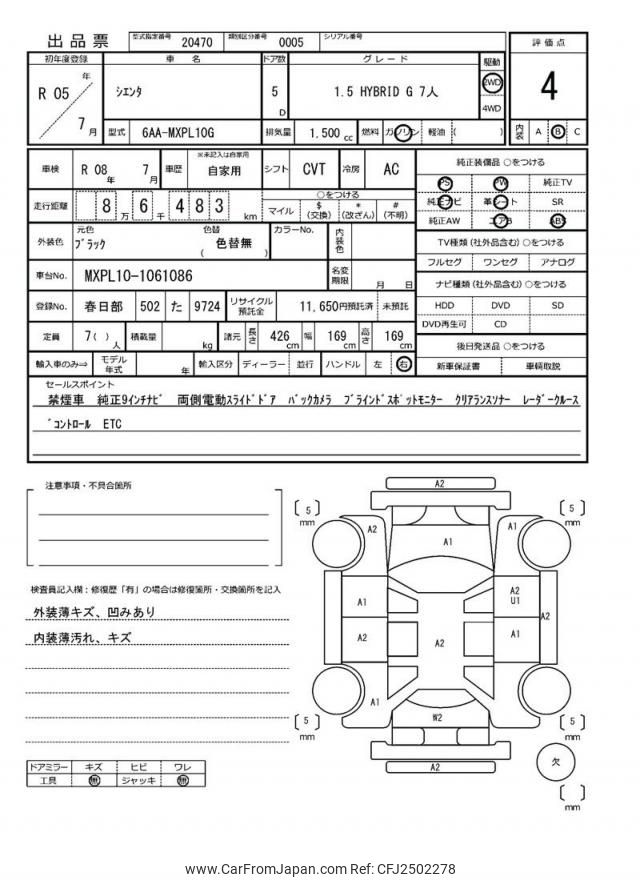 出品票 型式指定番号 20470 類別区分番号 0005 シリアル番号
評価点
4
内装 A B C
初年度登録 車名 ドア数 グレード 駆動
R 05 年 7 月 シエンタ 5 D 1.5 HYBRID G 7人 2WD 4WD
型式 6AA-MXPL10G 排気量 1,500 cc 燃料 ガソリン 軽油 ( )
車検 R 08 年 7 月 車歴 ※未記入は自家用 自家用 シフト CVT 冷房 AC
走行距離 8 万 6 千 4 8 3 km
○をつける
マイル $(交換) *(改ざん) #(不明)
外装色 元色 ブラック 色替 ( 色替無 ) カラーNo. 内装色
車台No. MXPL10-1061086 名変期限 月 日
登録No. 春日部 502 た 9724 リサイクル預託金 11,650円預託済 未預託
定員 7( )人 積載量 kg 諸元 長さ 426 cm 幅 169 cm 高さ 169 cm
輸入車のみ⇒ モデル年式 年 輸入区分 ディーラー 並行 ハンドル 左 右
純正装備品 ○をつける
PS PW 純正TV
純正ナビ 革シート SR
純正AW エアB ABS
TV種類(社外品含む)○をつける
フルセグ ワンセグ アナログ
ナビ種類(社外品含む)○をつける
HDD DVD SD
DVD再生可 CD
後日発送品 ○をつける
新車保証書 車輌取説
セールスポイント
禁煙車 純正9インチナビ 両側電動スライドドア バックカメラ ブラインドスポットモニター クリアランスソナー レーダークルーズ
コントロール ETC
注意事項・不具合箇所
検査員記入欄：修復歴「有」の場合は修復箇所・交換箇所を記入
外装薄キズ、凹みあり
内装薄汚れ、キズ
ドアミラー キズ ヒビ ワレ
工具 無 ジャッキ 無
A2
[ 5 ] mm
[ 5 ] mm
A2
A1
A1
A1
A2
U1
A2
A2
A2
A1
A1
W2
[ 5 ] mm
[ 5 ] mm
A2
欠
[ ] mm
www.CarFromJapan.com Ref: CFJ2502278